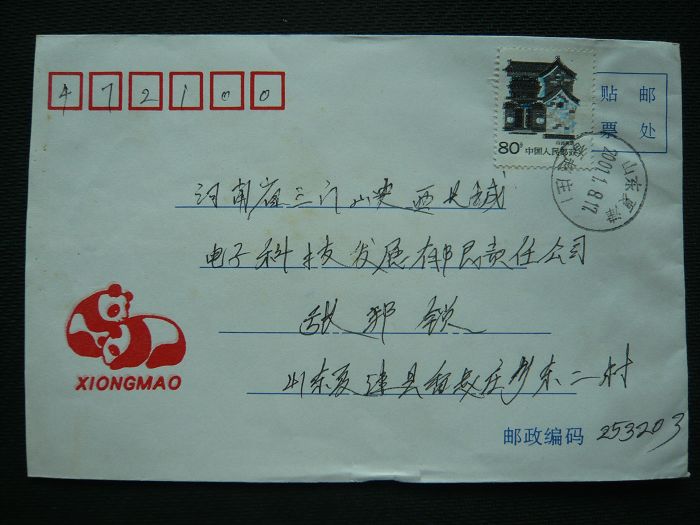 472100
贴 邮
票 处
80分
中国人民邮政
山东夏津
2001.1.8.17
河南省三门峡 西长城
电子科技发展有限责任公司
张邦锁
XIONGMAO
山东夏津县 庄乡东二村
邮政编码 253203